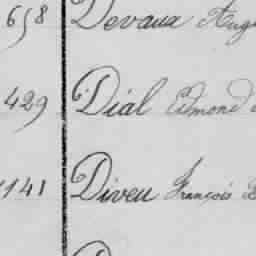 658 Devaux Aug
429 Dial Edmond
1141 Diveu François